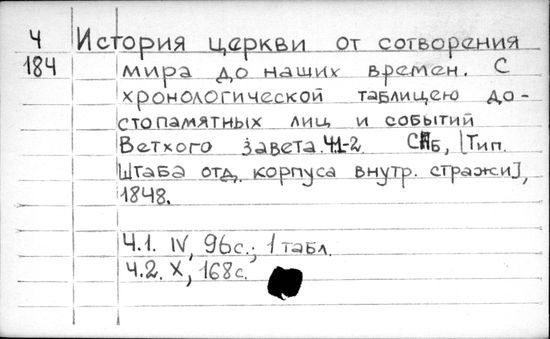 Ч История церкви от сотворения
184 мира до наших времен. С
хронологической таблицею до-
стопамятных лиц и событий
Ветхого завета. Ч.1-2. СПб, [Тип.
Штаба отд. корпуса внутр. стражи],
1848.
Ч.1. IV, 96с.; 1 табл.
Ч.2. X, 168с.